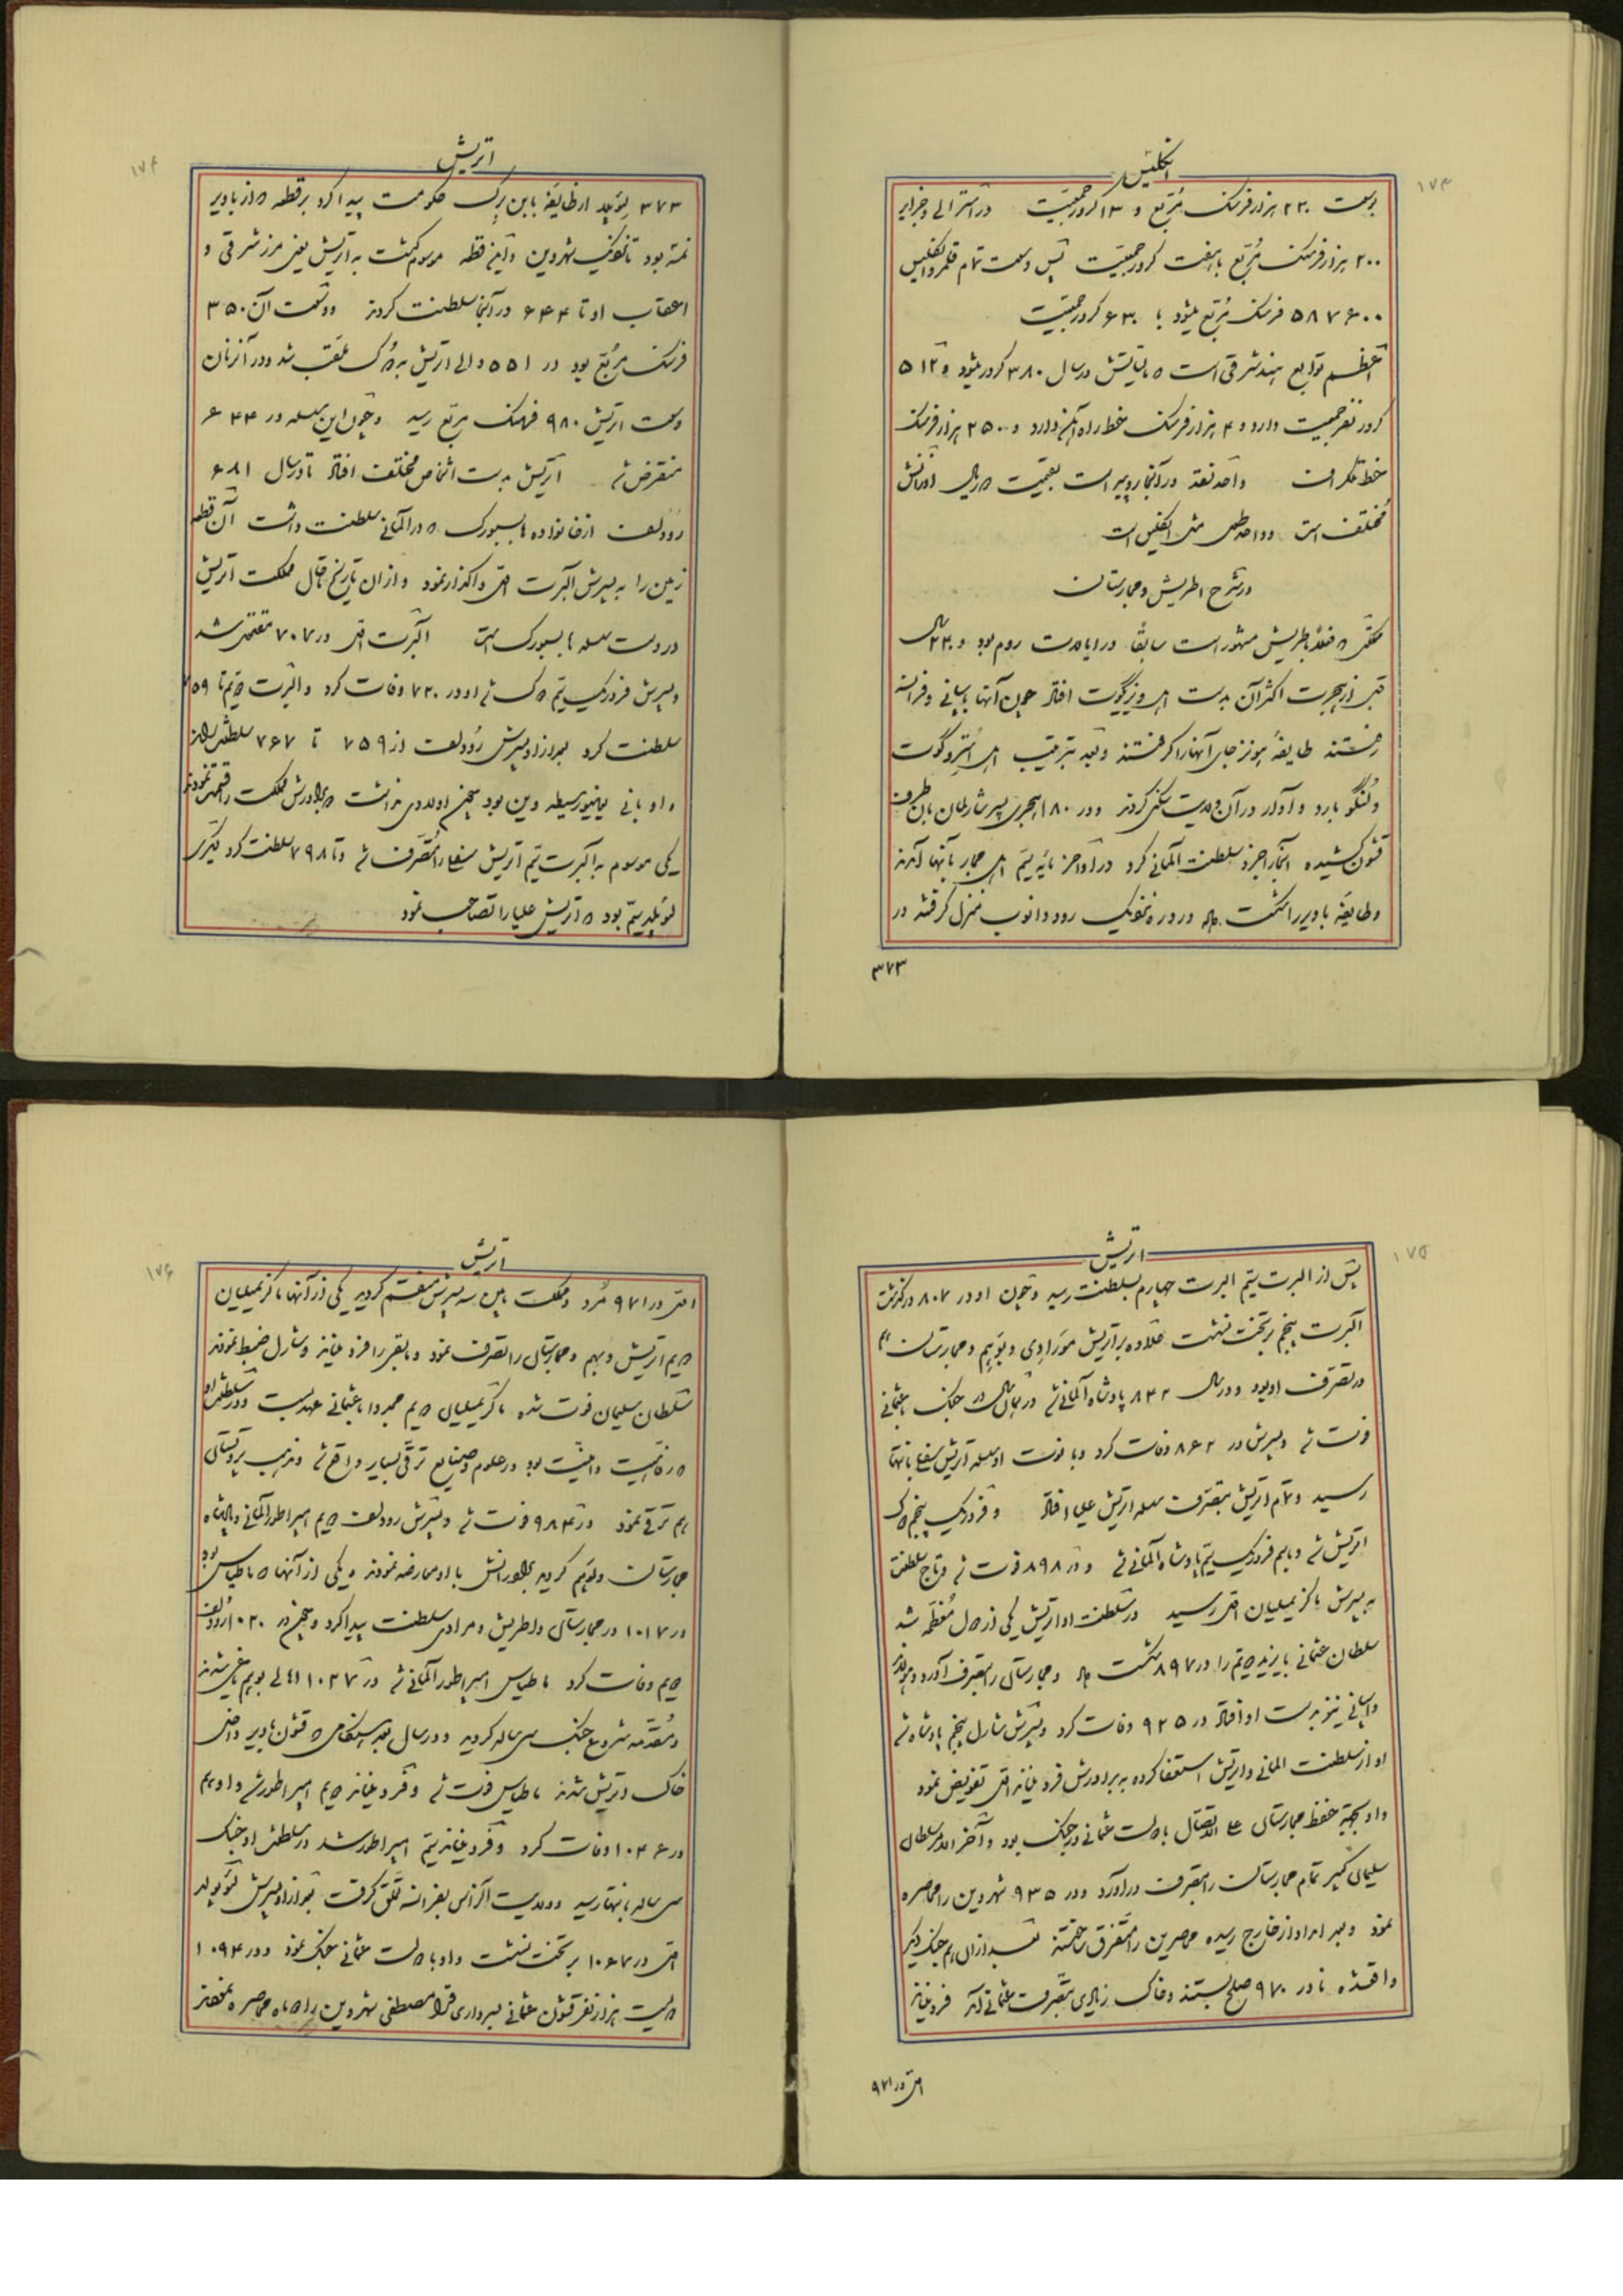 انگلیس
۱۷۳
بوسعت ۲۳۰ هزار فرسنگ مربع و ۱۳ کرور جمعیت در استرالی و جزایر
۲۰۰ هزار فرسنگ مربع با هفت کرور جمعیت پس وسعت تمام قلمرو انگلیس
۵۸۷۶۰۰ فرسنگ مربع میشود با ۶۳۰ کرور جمعیت
اعظم توابع هند شرقی است که مالیاتش در سال ۳۸۰ کرور میشود و ۵۱۲
کرور نفر جمعیت دارد و ۴ هزار فرسنگ خط راه آهن دارد و ۲۵۰ هزار فرسنگ
خط تلگراف واحد نقد در آنجا روپیه است بقیمت ریال اوزانش
مختلف است و واحد طول مثل انگلیس است
در شرح اطریش و مجارستان
ملکی که فعلا باطریش مشهور است سابقا در ایالت روم بود و ۲۳۰ سال
قبل از هجرت اکثر آن بدست اهل ویزیگوت افتاد چون آنها باسپانی و فرانسه
رفتند طایفه هونز جای آنها را گرفتند و بعد بترتیب اهل استروگوت
و لنگوبارد و آوار در آن ولایت سکنی کردند و در ۱۸۰ هجری پسر شارلمان بآن طرف
قشون کشیده آنجا را جزو سلطنت آلمانی کرد در اواخر مایه سیم اهل مجار بآنها آمدند
و طایفه باویر را شکست داد و در دره نزدیک رود دانوب منزل گرفتند در
۳۷۳
اتریش
۱۷۴
۳۷۳ لئوپلد از طایفه بابن برگ حکومت پیدا کرد بر قطعه که از باویر
نمسه بود تا نزدیک شهر وین و این قطعه موسوم گشت به اتریش یعنی مرز شرقی و
اعقاب او تا ۶۴۴ در آنجا سلطنت کردند و وسعت آن ۳۵۰
فرسنگ مربع بود در ۵۵۱ والی اتریش به دوک ملقب شد و در آنزمان
وسعت اتریش ۹۸۰ فرسنگ مربع رسید و چون این سلسله در ۶۴۴
منقرض شد اتریش بدست اشخاص مختلف افتاد تا در سال ۶۸۱
رودلف از خانواده هابسبورک که در آلمانی سلطنت داشت آن قطعه
زمین را به پسرش آلبرت اول واگذار نمود و از آن تاریخ تا حال مملکت اتریش
در دست سلسله هابسبورک است آلبرت اول در ۷۰۷ مقتول شد
و پسرش فردریک سیم دوک شد او در ۷۳۰ وفات کرد و آلبرت دویم تا ۷۵۹
سلطنت کرد بعد از او پسرش رودلف از ۷۵۹ تا ۷۶۷ سلطنت کرد
و او بانی یونیورسیطه وین بود چون اولادی نداشت دو برادرش مملکت را قسمت نمودند
یکی موسوم به آلبرت سیم اتریش سفلی را متصرف شد و تا ۷۹۸ سلطنت کرد دیگری
لئوپلد سیم بود که اتریش علیا را تصاحب نمود
اتریش
۱۷۵
پس از البرت سیم البرت چهارم بسلطنت رسید و چون او در ۸۰۷ درگذشت
آلبرت پنجم بر تخت نشست علاوه بر اتریش موراوی و بوهیم و مجارستان هم
در تصرف او بود و در سال ۸۴۲ پادشاه آلمانی شد در همان سال در جنگ با عثمانی
فوت شد و پسرش در ۸۶۲ وفات کرد و با فوت او سلسله اتریش سفلی بانتها
رسید و تمام اتریش بتصرف سلسله اتریش علیا افتاد و فردریک پنجم دوک
اتریش شد و باسم فردریک سیم پادشاه آلمانی شد و در ۸۹۸ فوت شد و تاج سلطنت
به پسرش ماکزیمیلیان اول رسید در سلطنت او اتریش یکی از دول معظمه شد
سلطان عثمانی بایزید دویم را در ۸۹۷ شکست داد و مجارستان را بتصرف آورد و هولند
و اسپانی نیز بدست او افتاد در ۹۲۵ وفات کرد و پسرش شارل پنجم پادشاه شد
او از سلطنت المانی و اتریش استعفا کرده به برادرش فردیناند اول تفویض نمود
و او بجهة حفظ مجارستان علی الاتصال با دولت عثمانی در جنگ بود و آخر الامر سلطان
سلیمان کبیر تمام مجارستان را بتصرف درآورد و در ۹۳۵ شهر وین را محاصره
نمود و بعد امداد از خارج رسیده محاصرین را متفرق ساختند بعد از آن هم جنگ دیگر
واقع شده تا در ۹۷۰ صلح بستند و خاک زیادی بتصرف عثمانی آمد فردیناند
اول در ۹۷۱
اتریش
۱۷۶
اول در ۹۷۱ مرد و مملکت مابین سه پسرش منقسم گردید یکی از آنها ماکزیمیلیان
دویم اتریش و بوهیم و مجارستان را تصرف نمود و مابقی را فردیناند و شارل ضبط نمودند
سلطان سلیمان فوت شده ماکزیمیلیان دویم مجددا با عثمانی عهد بست و در سلطنت او
که رفاهیت و امنیت بود در علوم و صنایع ترقی بسیار واقع شد و مذهب پروتستانی
هم ترقی نمود در ۹۸۴ فوت شد و پسرش رودلف دویم امپراطور آلمانی و پادشاه
مجارستان و بوهیم گردید برادرانش با او معارضه نمودند و یکی از آنها که ماطیاس بود
در ۱۰۱۷ در مجارستان و اطریش و مراوی سلطنت پیدا کرد و چون در ۱۰۲۰ رودلف
دویم وفات کرد ماطیاس امپراطور آلمانی شد در ۱۰۲۷ اهالی بوهیم یاغی شدند
و مقدمه شروع جنگ سی ساله گردید و در سال بعد هنگامی که قشون باویر داخل
خاک اتریش شدند ماطیاس فوت شد و فردیناند دویم امپراطور شد و او هم
در ۱۰۴۶ وفات کرد و فردیناند سیم امپراطور شد در سلطنت او جنگ
سی ساله بانتها رسید و ولایت آلزاس بفرانسه تعلق گرفت بعد از او پسرش لئوپلد
اول در ۱۰۶۷ بر تخت نشست و او با دولت عثمانی جنگ نمود و در ۱۰۹۴
دویست هزار نفر قشون عثمانی بسرداری قرامصطفی شهر وین را دو ماه محاصره نمودند